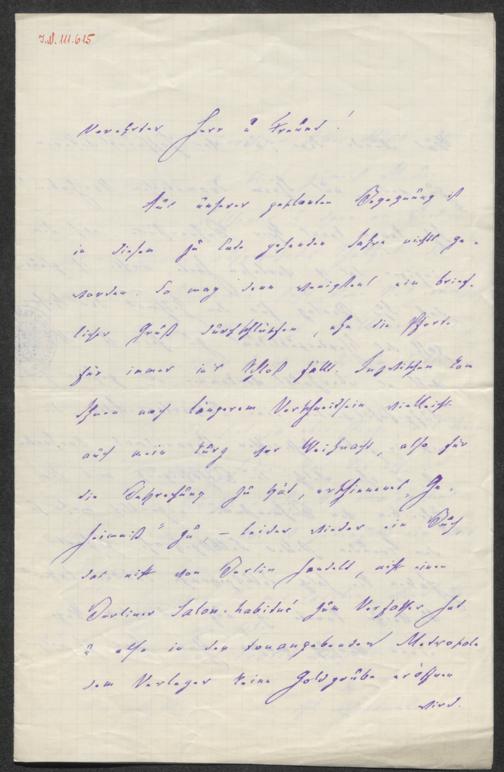 I.N. 111.615
Verehrter Herr u Freund!
Aus unserer geplanten Begegnung ist
in diesem zu Ende gehenden Jahre nichts ge-
worden. So mag denn wenigstens ein brief-
licher Gruß durchschlüpfen, ehe die Pforte
für immer in's Schloß fällt. Inzwischen kam
Ihnen nach längerem Verschneitsein vielleicht
auch mein kurz vor Weihnacht, also für
die Versendung zu spät, erschienenes „Ge-
heimniß" zu – leider wieder ein Buch,
das nicht von Berlin handelt, nicht einen
Berliner Salon-habitué zum Verfasser hat
u also in der tonangebenden Metropole
dem Verleger keine Goldgrube eröffnen
wird.